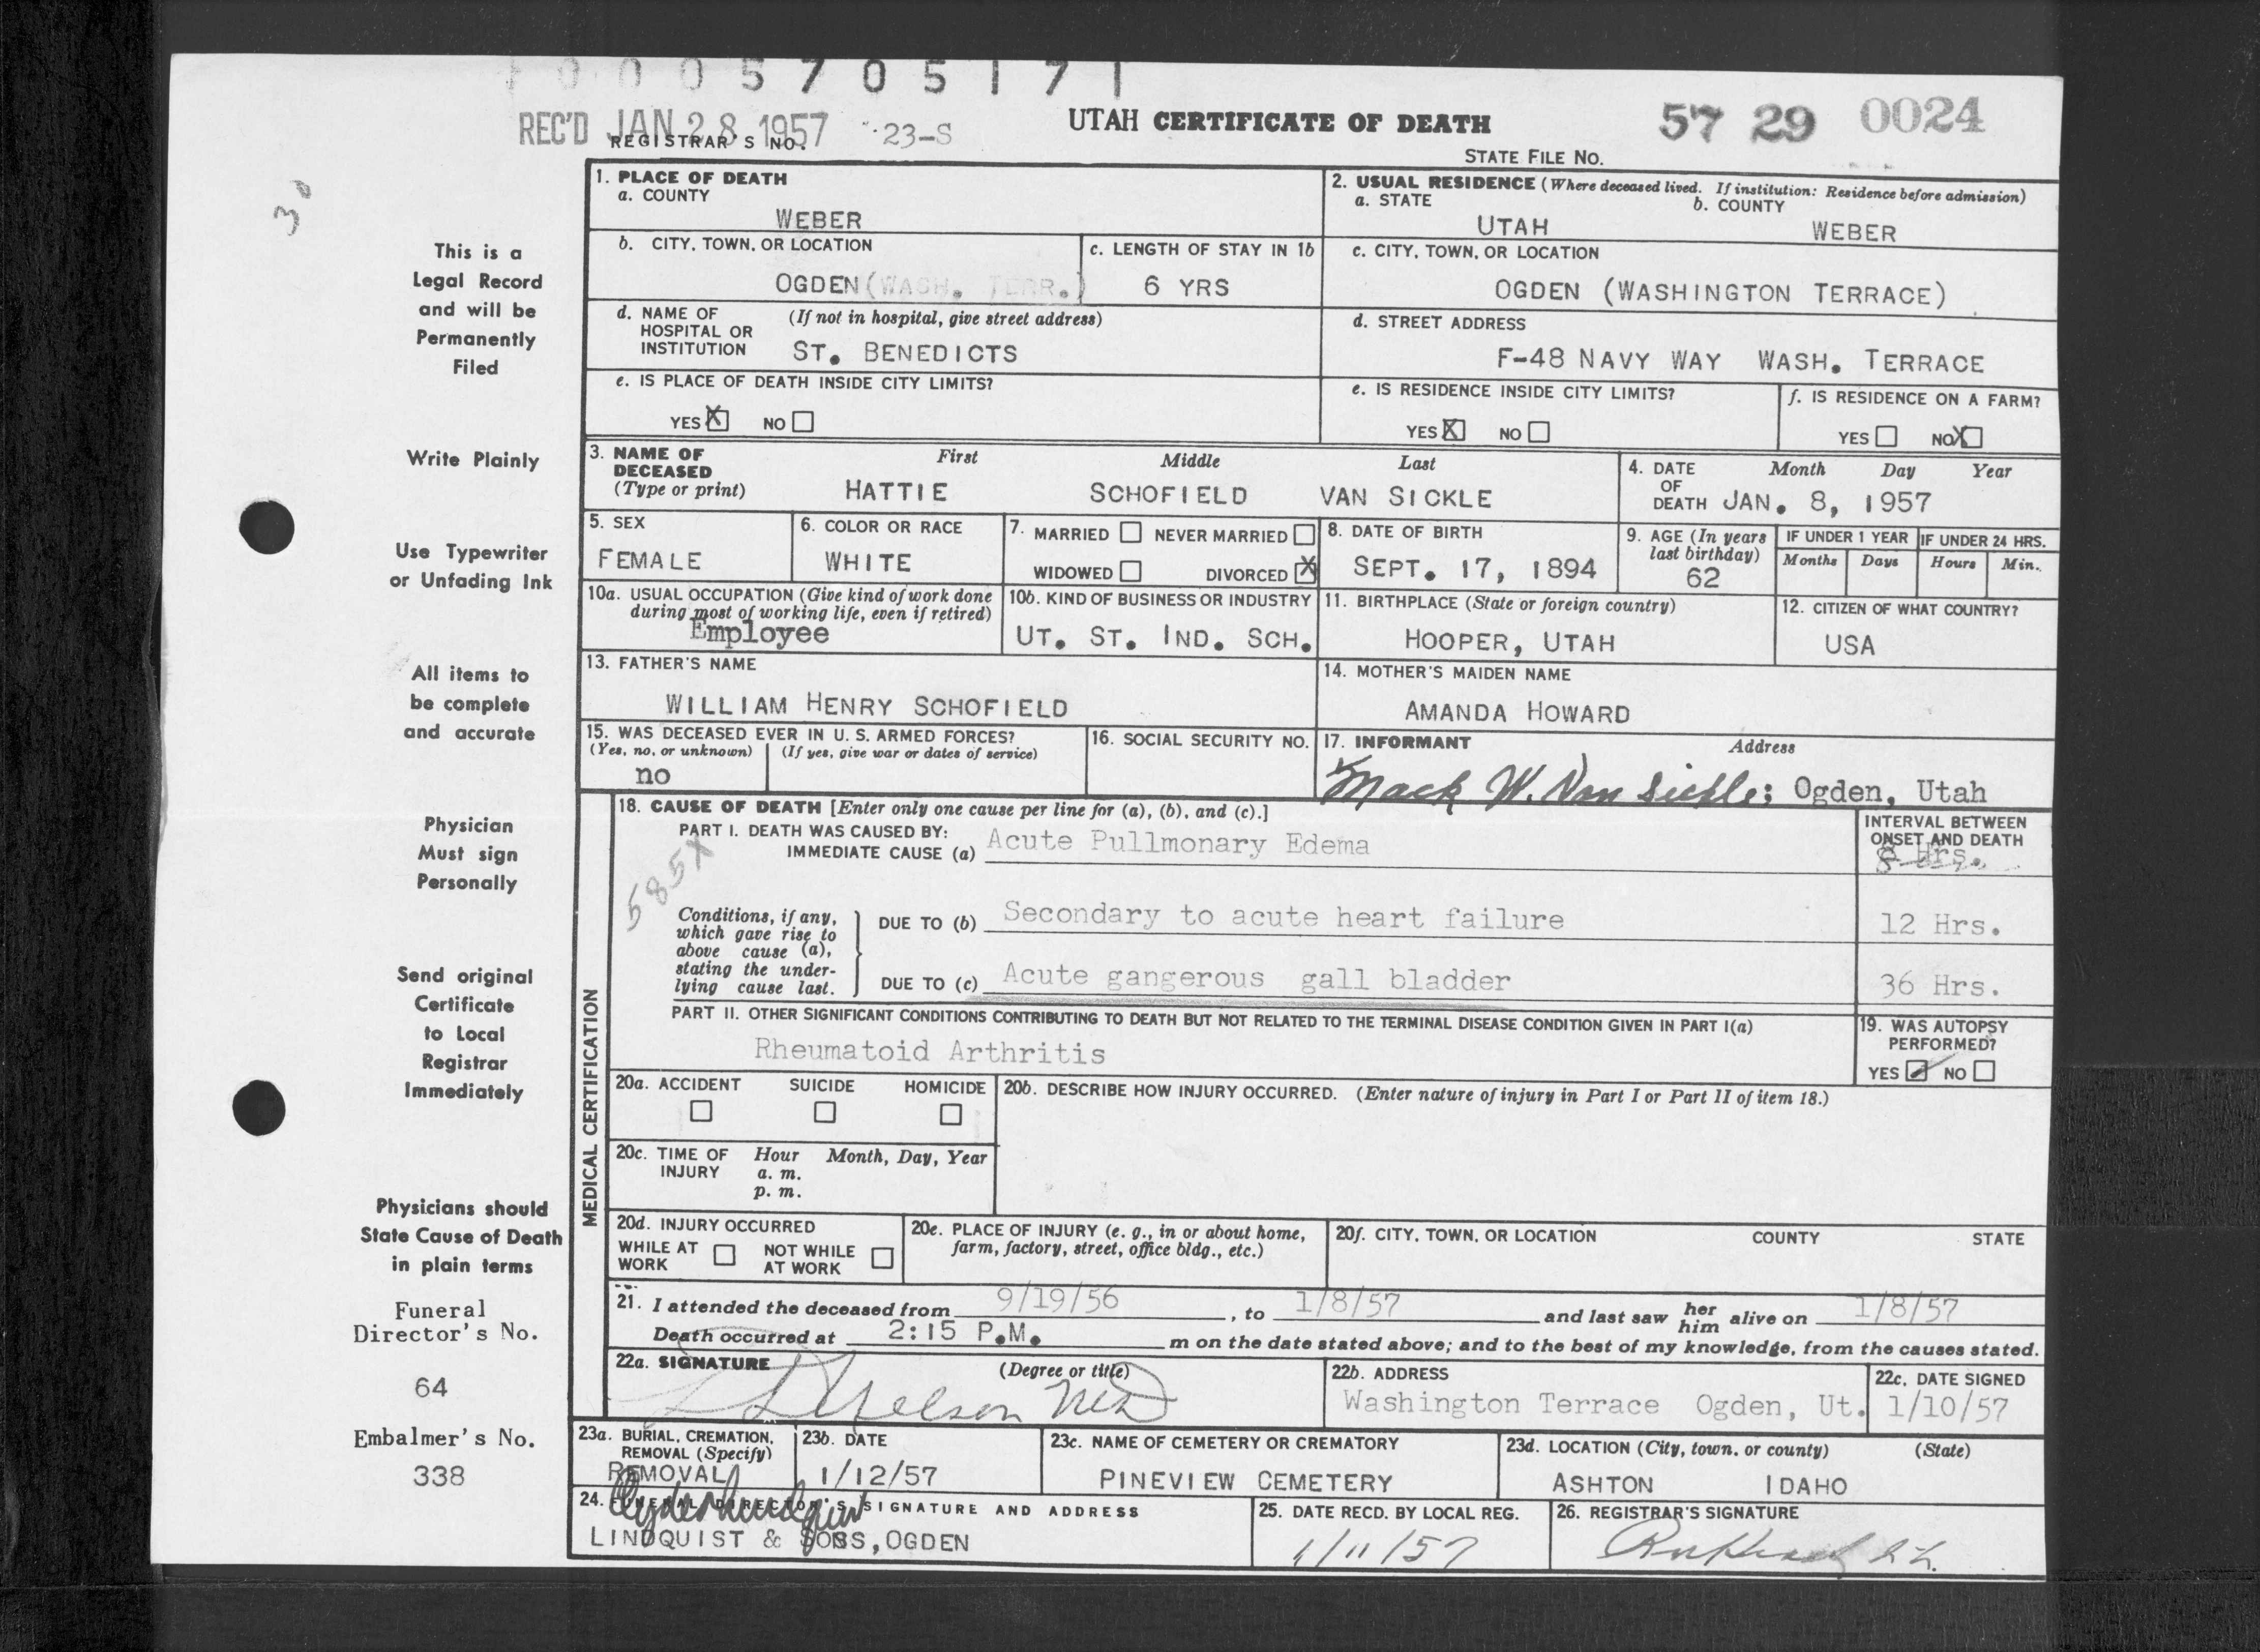 0005705171
REC'D JAN 28 1957 23-S UTAH CERTIFICATE OF DEATH 57 29 0024
REGISTRAR'S NO. STATE FILE NO.
30
This is a
Legal Record
and will be
Permanently
Filed
Write Plainly
Use Typewriter
or Unfading Ink
All items to
be complete
and accurate
Physician
Must sign
Personally
Send original
Certificate
to Local
Registrar
Immediately
Physicians should
State Cause of Death
in plain terms
Funeral
Director's No.
64
Embalmer's No.
338
1. PLACE OF DEATH
a. COUNTY
WEBER
2. USUAL RESIDENCE (Where deceased lived. If institution: Residence before admission)
a. STATE b. COUNTY
UTAH WEBER
b. CITY, TOWN, OR LOCATION
OGDEN (WASH. TERR.)
c. LENGTH OF STAY IN 1b
6 YRS
c. CITY, TOWN, OR LOCATION
OGDEN (WASHINGTON TERRACE)
d. NAME OF (If not in hospital, give street address)
HOSPITAL OR
INSTITUTION ST. BENEDICTS
d. STREET ADDRESS
F-48 NAVY WAY WASH. TERRACE
e. IS PLACE OF DEATH INSIDE CITY LIMITS?
YES X NO
e. IS RESIDENCE INSIDE CITY LIMITS?
YES X NO
f. IS RESIDENCE ON A FARM?
YES NO X
3. NAME OF First Middle Last
DECEASED
(Type or print) HATTIE SCHOFIELD VAN SICKLE
4. DATE Month Day Year
OF
DEATH JAN. 8, 1957
5. SEX
FEMALE
6. COLOR OR RACE
WHITE
7. MARRIED NEVER MARRIED
WIDOWED DIVORCED X
8. DATE OF BIRTH
SEPT. 17, 1894
9. AGE (In years
last birthday)
62
IF UNDER 1 YEAR IF UNDER 24 HRS.
Months Days Hours Min.
10a. USUAL OCCUPATION (Give kind of work done
during most of working life, even if retired)
Employee
10b. KIND OF BUSINESS OR INDUSTRY
UT. ST. IND. SCH.
11. BIRTHPLACE (State or foreign country)
HOOPER, UTAH
12. CITIZEN OF WHAT COUNTRY?
USA
13. FATHER'S NAME
WILLIAM HENRY SCHOFIELD
14. MOTHER'S MAIDEN NAME
AMANDA HOWARD
15. WAS DECEASED EVER IN U. S. ARMED FORCES?
(Yes, no, or unknown) (If yes, give war or dates of service)
no
16. SOCIAL SECURITY NO.
17. INFORMANT Address
Mack W. Van Sickle; Ogden, Utah
MEDICAL CERTIFICATION
18. CAUSE OF DEATH [Enter only one cause per line for (a), (b), and (c).]
PART I. DEATH WAS CAUSED BY:
IMMEDIATE CAUSE (a) Acute Pullmonary Edema
INTERVAL BETWEEN
ONSET AND DEATH
8 Hrs.
585X
Conditions, if any,
which gave rise to
above cause (a),
stating the under-
lying cause last.
DUE TO (b) Secondary to acute heart failure 12 Hrs.
DUE TO (c) Acute gangerous gall bladder 36 Hrs.
PART II. OTHER SIGNIFICANT CONDITIONS CONTRIBUTING TO DEATH BUT NOT RELATED TO THE TERMINAL DISEASE CONDITION GIVEN IN PART I(a)
Rheumatoid Arthritis
19. WAS AUTOPSY
PERFORMED?
YES NO
20a. ACCIDENT SUICIDE HOMICIDE
20b. DESCRIBE HOW INJURY OCCURRED. (Enter nature of injury in Part I or Part II of item 18.)
20c. TIME OF Hour Month, Day, Year
INJURY a. m.
p. m.
20d. INJURY OCCURRED
WHILE AT NOT WHILE
WORK AT WORK
20e. PLACE OF INJURY (e. g., in or about home,
farm, factory, street, office bldg., etc.)
20f. CITY, TOWN, OR LOCATION COUNTY STATE
21. I attended the deceased from 9/19/56, to 1/8/57 and last saw her him alive on 1/8/57
Death occurred at 2:15 P.M. m on the date stated above; and to the best of my knowledge, from the causes stated.
22a. SIGNATURE (Degree or title)
Nelson MD
22b. ADDRESS
Washington Terrace Ogden, Ut.
22c. DATE SIGNED
1/10/57
23a. BURIAL, CREMATION,
REMOVAL (Specify)
REMOVAL
23b. DATE
1/12/57
23c. NAME OF CEMETERY OR CREMATORY
PINEVIEW CEMETERY
23d. LOCATION (City, town, or county) (State)
ASHTON IDAHO
24. FUNERAL DIRECTOR'S SIGNATURE AND ADDRESS
LINDQUIST & SONS, OGDEN
25. DATE RECD. BY LOCAL REG.
1/11/57
26. REGISTRAR'S SIGNATURE